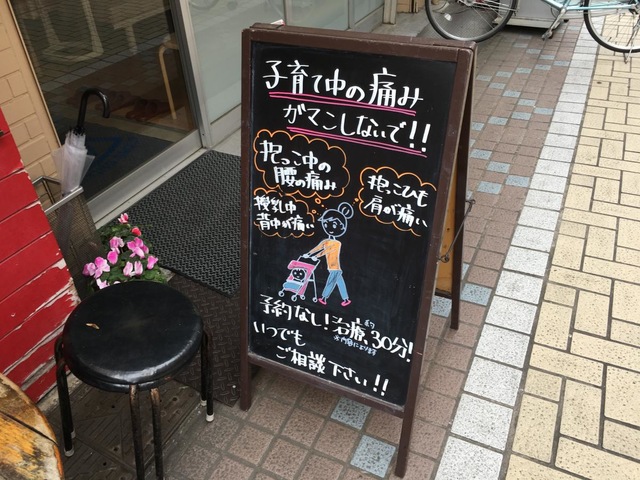 子育て中の痛み
ガマンしないで!!
抱っこ中の
腰の痛み
抱っこひも
肩が痛い
授乳中
背中が痛い
予約なし!治療約30分!
※内容によります
いつでも
ご相談下さい!!